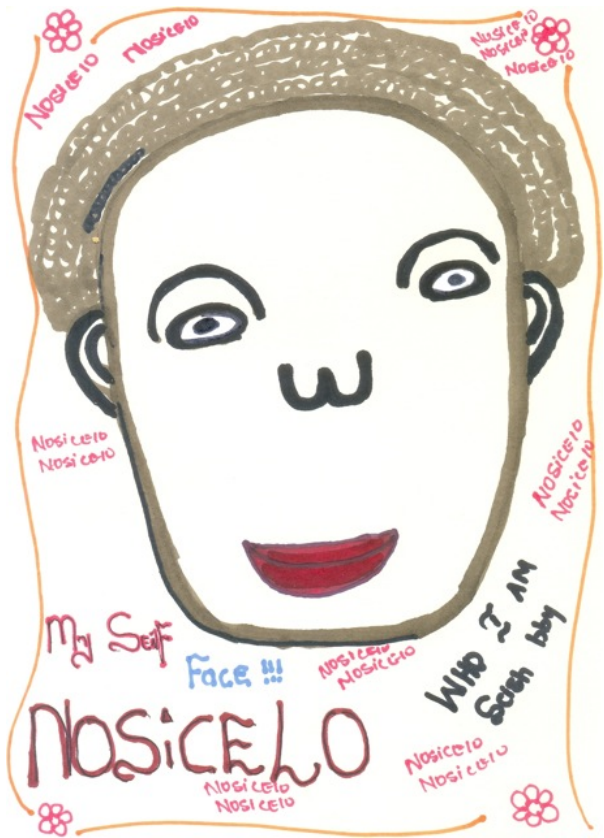 NOSICElO
NOSICElO
NOSICElO
NOSICElO
NOSICElO
NOSICElO
NOSICElO
NOSICElO
NOSICElO
My Self
FacE !!!
NOSICElO
NOSICElO
WHO I AM
NOSiCELO
NOSICElO
NOSICElO
NOSICElO
NOSICElO